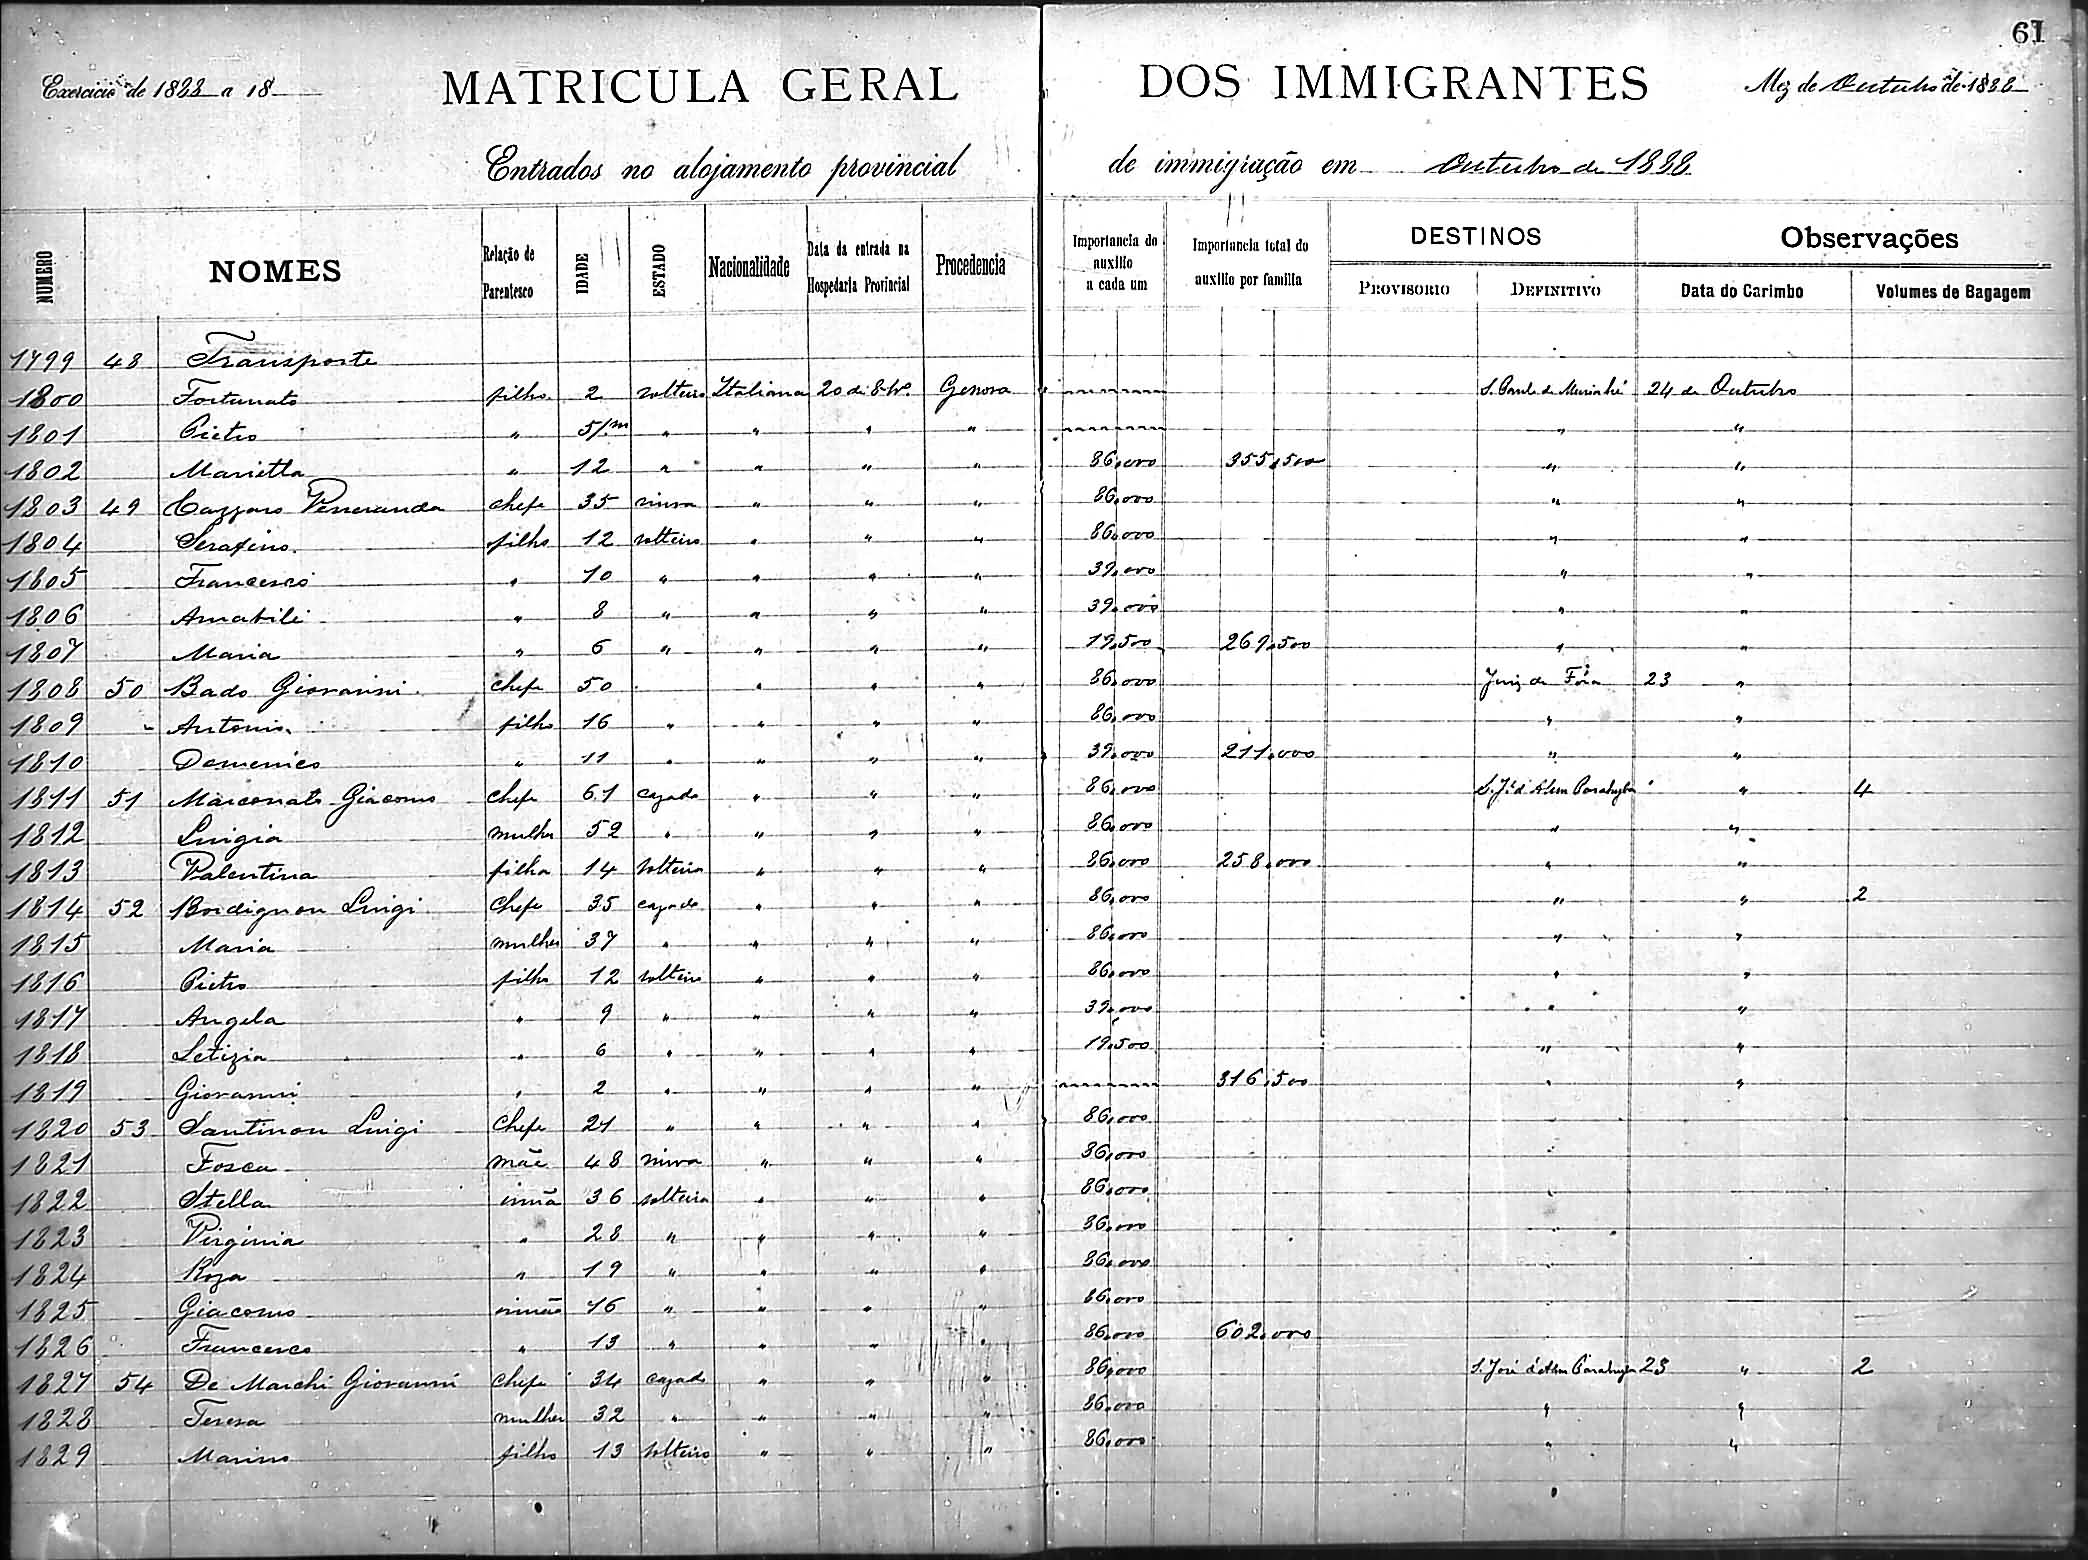 61
Exercicio de 1888 a 18
MATRICULA GERAL DOS IMMIGRANTES
Mez de Outubro de 1888
Entrados no alojamento provincial de immigração em Outubro de 1888
NUMERO NOMES Relação de Parentesco IDADE ESTADO Nacionalidade Data da entrada na Hospedaria Provincial Procedencia Importancia do auxilio a cada um Importancia total do auxilio por familia DESTINOS PROVISORIO DEFINITIVO Observações Data do Carimbo Volumes de Bagagem
1799 48 Transporte
1800 Fortunato filho 2 solteiro Italiana 20 de 8bro. Genova " S. Paulo de Muriahé 24 de Outubro
1801 Pietro " 5/m " " " " " "
1802 Marietta " 12 " " " " 86,000 355,500 " "
1803 49 Cazzaro Veneranda chefe 35 viuva " " " 86,000 " "
1804 Serafino filho 12 solteiro " " " 86,000 " "
1805 Francesco " 10 " " " " 39,000 " "
1806 Amabile " 8 " " " " 39,000 " "
1807 Maria " 6 " " " " 19,500 269,500 " "
1808 50 Bado Giovanni chefe 50 " " " 86,000 Juiz de Fóra 23 "
1809 Antonio filho 16 " " " " 86,000 " "
1810 Domenico " 11 " " " " 39,000 211,000 " "
1811 51 Marconato Giacomo chefe 61 cazado " " " 86,000 S. Jé d'Alem Parahyba " " 4
1812 Luigia mulher 52 " " " " 86,000 " "
1813 Valentina filha 14 solteira " " " 86,000 258,000 " "
1814 52 Bordignon Luigi chefe 35 cazado " " " 86,000 " " 2
1815 Maria mulher 37 " " " " 86,000 " "
1816 Pietro filho 12 solteiro " " " 86,000 " "
1817 Angela " 9 " " " " 39,000 " "
1818 Letizia " 6 " " " " 19,500 " "
1819 Giovanni " 2 " " " " 316,500 " "
1820 53 Santinon Luigi chefe 21 " " " " 86,000 "
1821 Fosca mãe 48 viuva " " " 86,000 "
1822 Stella irmã 36 solteira " " " 86,000 "
1823 Virginia " 28 " " " " 86,000 "
1824 Roza " 19 " " " " 86,000
1825 Giacomo irmão 16 " " " " 86,000
1826 Francesco " 13 " " " " 86,000 602,000
1827 54 De Marchi Giovanni chefe 34 cazado " " " 86,000 S. José d'Alem Parahyba 23 " 2
1828 Teresa mulher 32 " " " " 86,000 " "
1829 Marino filho 13 solteiro " " " 86,000 " "